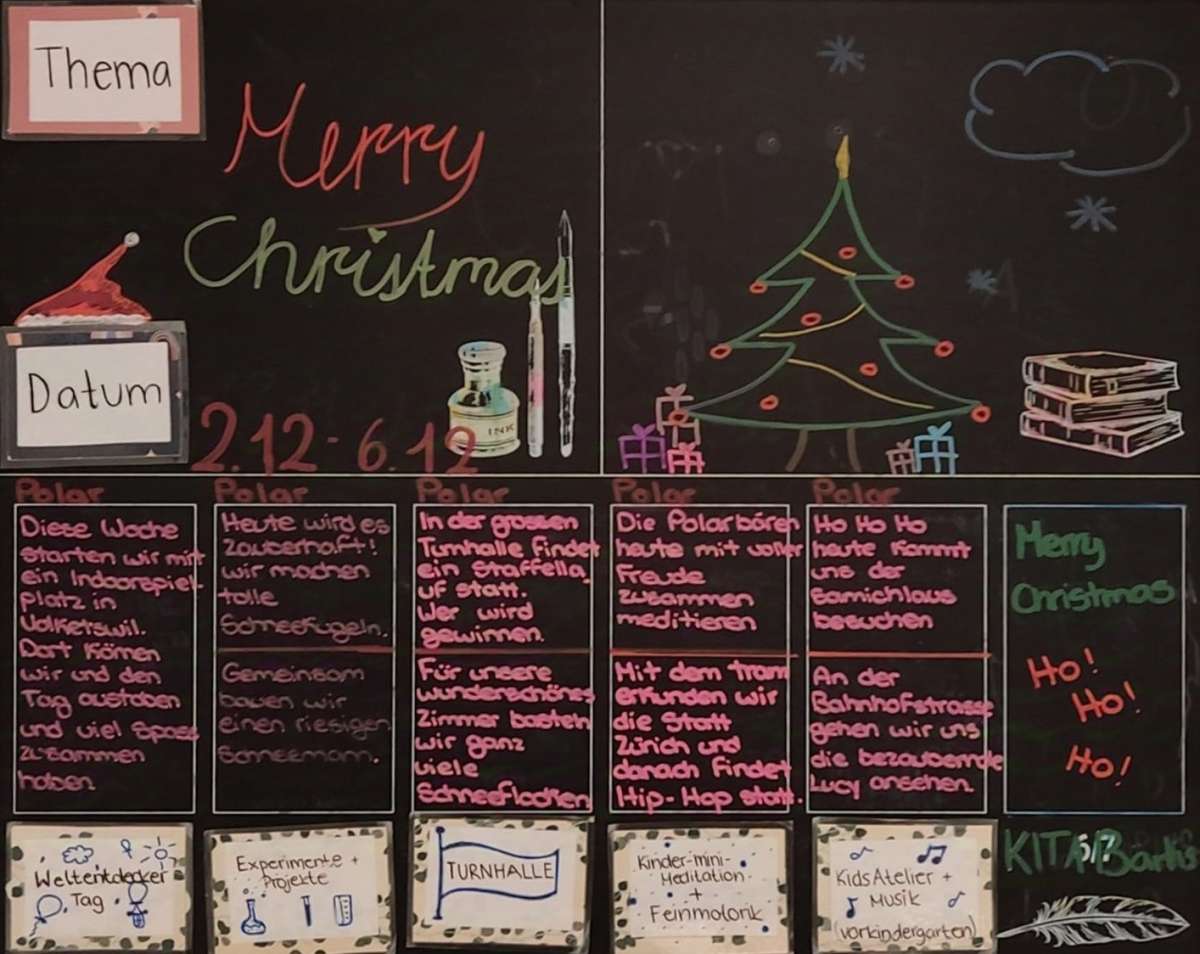 Thema
Merry
Christmas
INK
Datum
2.12 - 6.12
Polar
Diese Woche
starten wir mit
ein Indoorspiel
platz in
Volketswil.
Dort Kömen
wir und den
Tag austoben
und viel Spass
zusammen
haben.
Weltentdecker
Tag
Polar
Heute wird es
zauberhaft!
wir machen
tolle
Schneekugeln.
Gemeinsam
bauen wir
einen riesigen
Schneemann.
Experimente +
Projekte
Polar
In der grossen
Turnhalle findet
ein Staffella
uf statt.
Wer wird
gewinnen.
Für unsere
wunderschönes
Zimmer basteln
wir ganz
viele
Schneeflocken
TURNHALLE
Polar
Die Polarbären
heute mit voller
Freude
zusammen
meditieren
Mit dem tram
erkunden wir
die Statt
Zürich und
danach findet
Hip-Hop statt.
Kinder-mini-
Meditation
+
Feinmotorik
Polar
Ho Ho Ho
heute kommt
uns der
Samichlaus
besuchen
An der
Bahnhofstrasse
gehen wir uns
die bezaubernde
Lucy ansehen.
Kids Atelier +
Musik
(vorkindergarten)
Merry
Christmas
Ho!
Ho!
Ho!
KITA